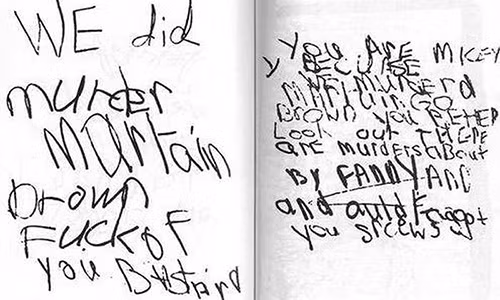 WE did
murder
martain
Brown
FUCKOF
you BAstArd
You ARE MICEY
y BECUSE
WE MURDERd
MARTAIN GO
BROWN you BETER
Look out THERE
ARE MURDERS aBout
By FANNY AND
and auld Faggot
you SCREWS